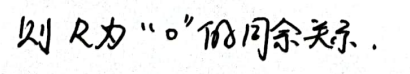 则 R为“o”的同余关系.